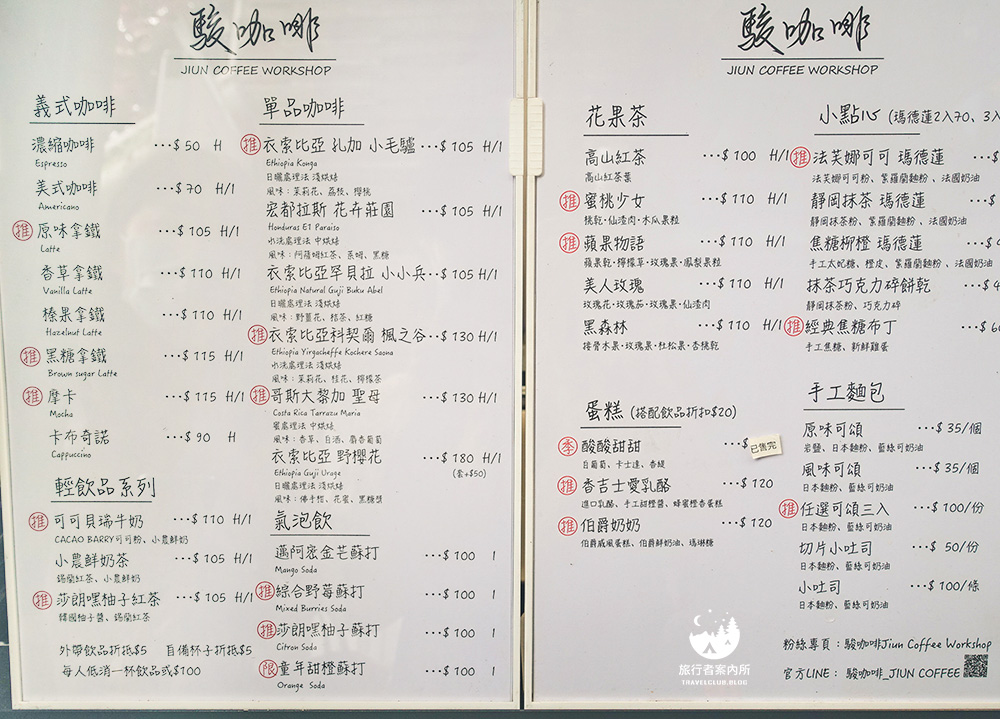 駿咖啡
JIUN COFFEE WORKSHOP
義式咖啡
濃縮咖啡 ···$ 50 H
Espresso
美式咖啡 ···$ 70 H/I
Americano
推 原味拿鐵 ···$ 105 H/I
Latte
香草拿鐵 ···$ 110 H/I
Vanilla Latte
榛果拿鐵 ···$ 110 H/I
Hazelnut Latte
推 黑糖拿鐵 ···$ 115 H/I
Brown sugar Latte
推 摩卡 ···$ 115 H/I
Mocha
卡布奇諾 ···$ 90 H
Cappuccino
輕飲品系列
推 可可貝瑞牛奶 ···$ 110 H/I
CACAO BARRY可可粉、小農鮮奶
小農鮮奶茶 ···$ 105 H/I
錫蘭紅茶、小農鮮奶
推 莎朗嘿柚子紅茶 ···$ 105 H/I
韓國柚子醬、錫蘭紅茶
外帶飲品折抵$5 自備杯子折抵$5
每人低消一杯飲品或$100
單品咖啡
推 衣索比亞 孔加 小毛驢 ···$ 105 H/I
Ethiopia Konga
日曬處理法 淺烘焙
風味：茉莉花、荔枝、櫻桃
宏都拉斯 花卉莊園 ···$ 105 H/I
Honduras El Paraiso
水洗處理法 中烘焙
風味：阿薩姆紅茶、萊姆、黑糖
衣索比亞罕貝拉 小小兵 ···$ 105 H/I
Ethiopia Natural Guji Buku Abel
日曬處理法 淺烘焙
風味：野薑花、桔茶、紅糖
推 衣索比亞科契爾 楓之谷 ···$ 130 H/I
Ethiopia Yirgacheffe Kochere Saona
水洗處理法 淺烘焙
風味：茉莉花、桂花、檸檬茶
推 哥斯大黎加 聖母 ···$ 130 H/I
Costa Rica Tarrazu Maria
蜜處理法 中烘焙
風味：香草、白酒、麝香葡萄
衣索比亞 野櫻花 ···$ 180 H/I
Ethiopia Guji Uraga (套+$50)
日曬處理法 淺烘焙
風味：佛手柑、花蜜、黑糖漿
氣泡飲
邁阿密金芒蘇打 ···$ 100 I
Mango Soda
推 綜合野莓蘇打 ···$ 100 I
Mixed Burries Soda
推 莎朗嘿柚子蘇打 ···$ 100 I
Citron Soda
限 童年甜橙蘇打 ···$ 100 I
Orange Soda
駿咖啡
JIUN COFFEE WORKSHOP
花果茶
高山紅茶 ···$ 100 H/I
高山紅茶葉
推 蜜桃少女 ···$ 110 H/I
桃乾·仙渣肉·木瓜果粒
推 蘋果物語 ···$ 110 H/I
蘋果乾·檸檬草·玫瑰果·鳳梨果粒
美人玫瑰 ···$ 110 H/I
玫瑰花·玫瑰茄·玫瑰果·仙渣肉
黑森林 ···$ 110 H/I
接骨木果·玫瑰果·杜松果·杏桃乾
蛋糕 (搭配飲品折扣$20)
季 酸酸甜甜 ···$ 已售完
白葡萄、卡士達、香緹
推 香吉士愛乳酪 ···$ 120
進口乳酪、手工甜橙醬、蜂蜜橙香蛋糕
推 伯爵奶奶 ···$ 120
伯爵戚風蛋糕、伯爵鮮奶油、瑪琳糖
小點心 (瑪德蓮2入70、3入
推 法芙娜可可 瑪德蓮 ···$
法芙娜可可粉、紫羅蘭麵粉、法國奶油
靜岡抹茶 瑪德蓮 ···$
靜岡抹茶粉、紫羅蘭麵粉、法國奶油
焦糖柳橙 瑪德蓮 ···$
手工太妃糖、橙皮、紫羅蘭麵粉、法國奶油
抹茶巧克力碎餅乾 ···$ 4
靜岡抹茶粉、巧克力碎
推 經典焦糖布丁 ···$ 6
手工焦糖、新鮮雞蛋
手工麵包
原味可頌 ···$ 35/個
岩鹽、日本麵粉、藍絲可奶油
風味可頌 ···$ 35/個
日本麵粉、藍絲可奶油
推 任選可頌三入 ···$ 100/份
日本麵粉、藍絲可奶油
切片小吐司 ···$ 50/份
日本麵粉、藍絲可奶油
小吐司 ···$ 100/條
日本麵粉、藍絲可奶油
粉絲專頁：駿咖啡Jiun Coffee Workshop
官方LINE：駿咖啡_JIUN COFFEE
旅行者案內所
TRAVELCLUB.BLOG